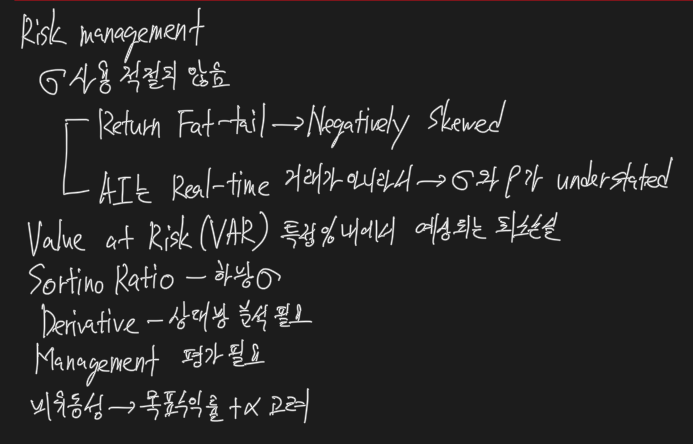 Risk management
σ 사용 적절치 않음
Return Fat-tail → Negatively Skewed
AI는 Real-time 거래가 아니라서 → σ와 ρ가 understated
Value at Risk (VAR) 특정 % 내에서 예상되는 최소손실
Sortino Ratio – 하방σ
Derivative – 상대방 분석 필요
Management 평가 필요
비유동성 → 목표수익률 +α 고려